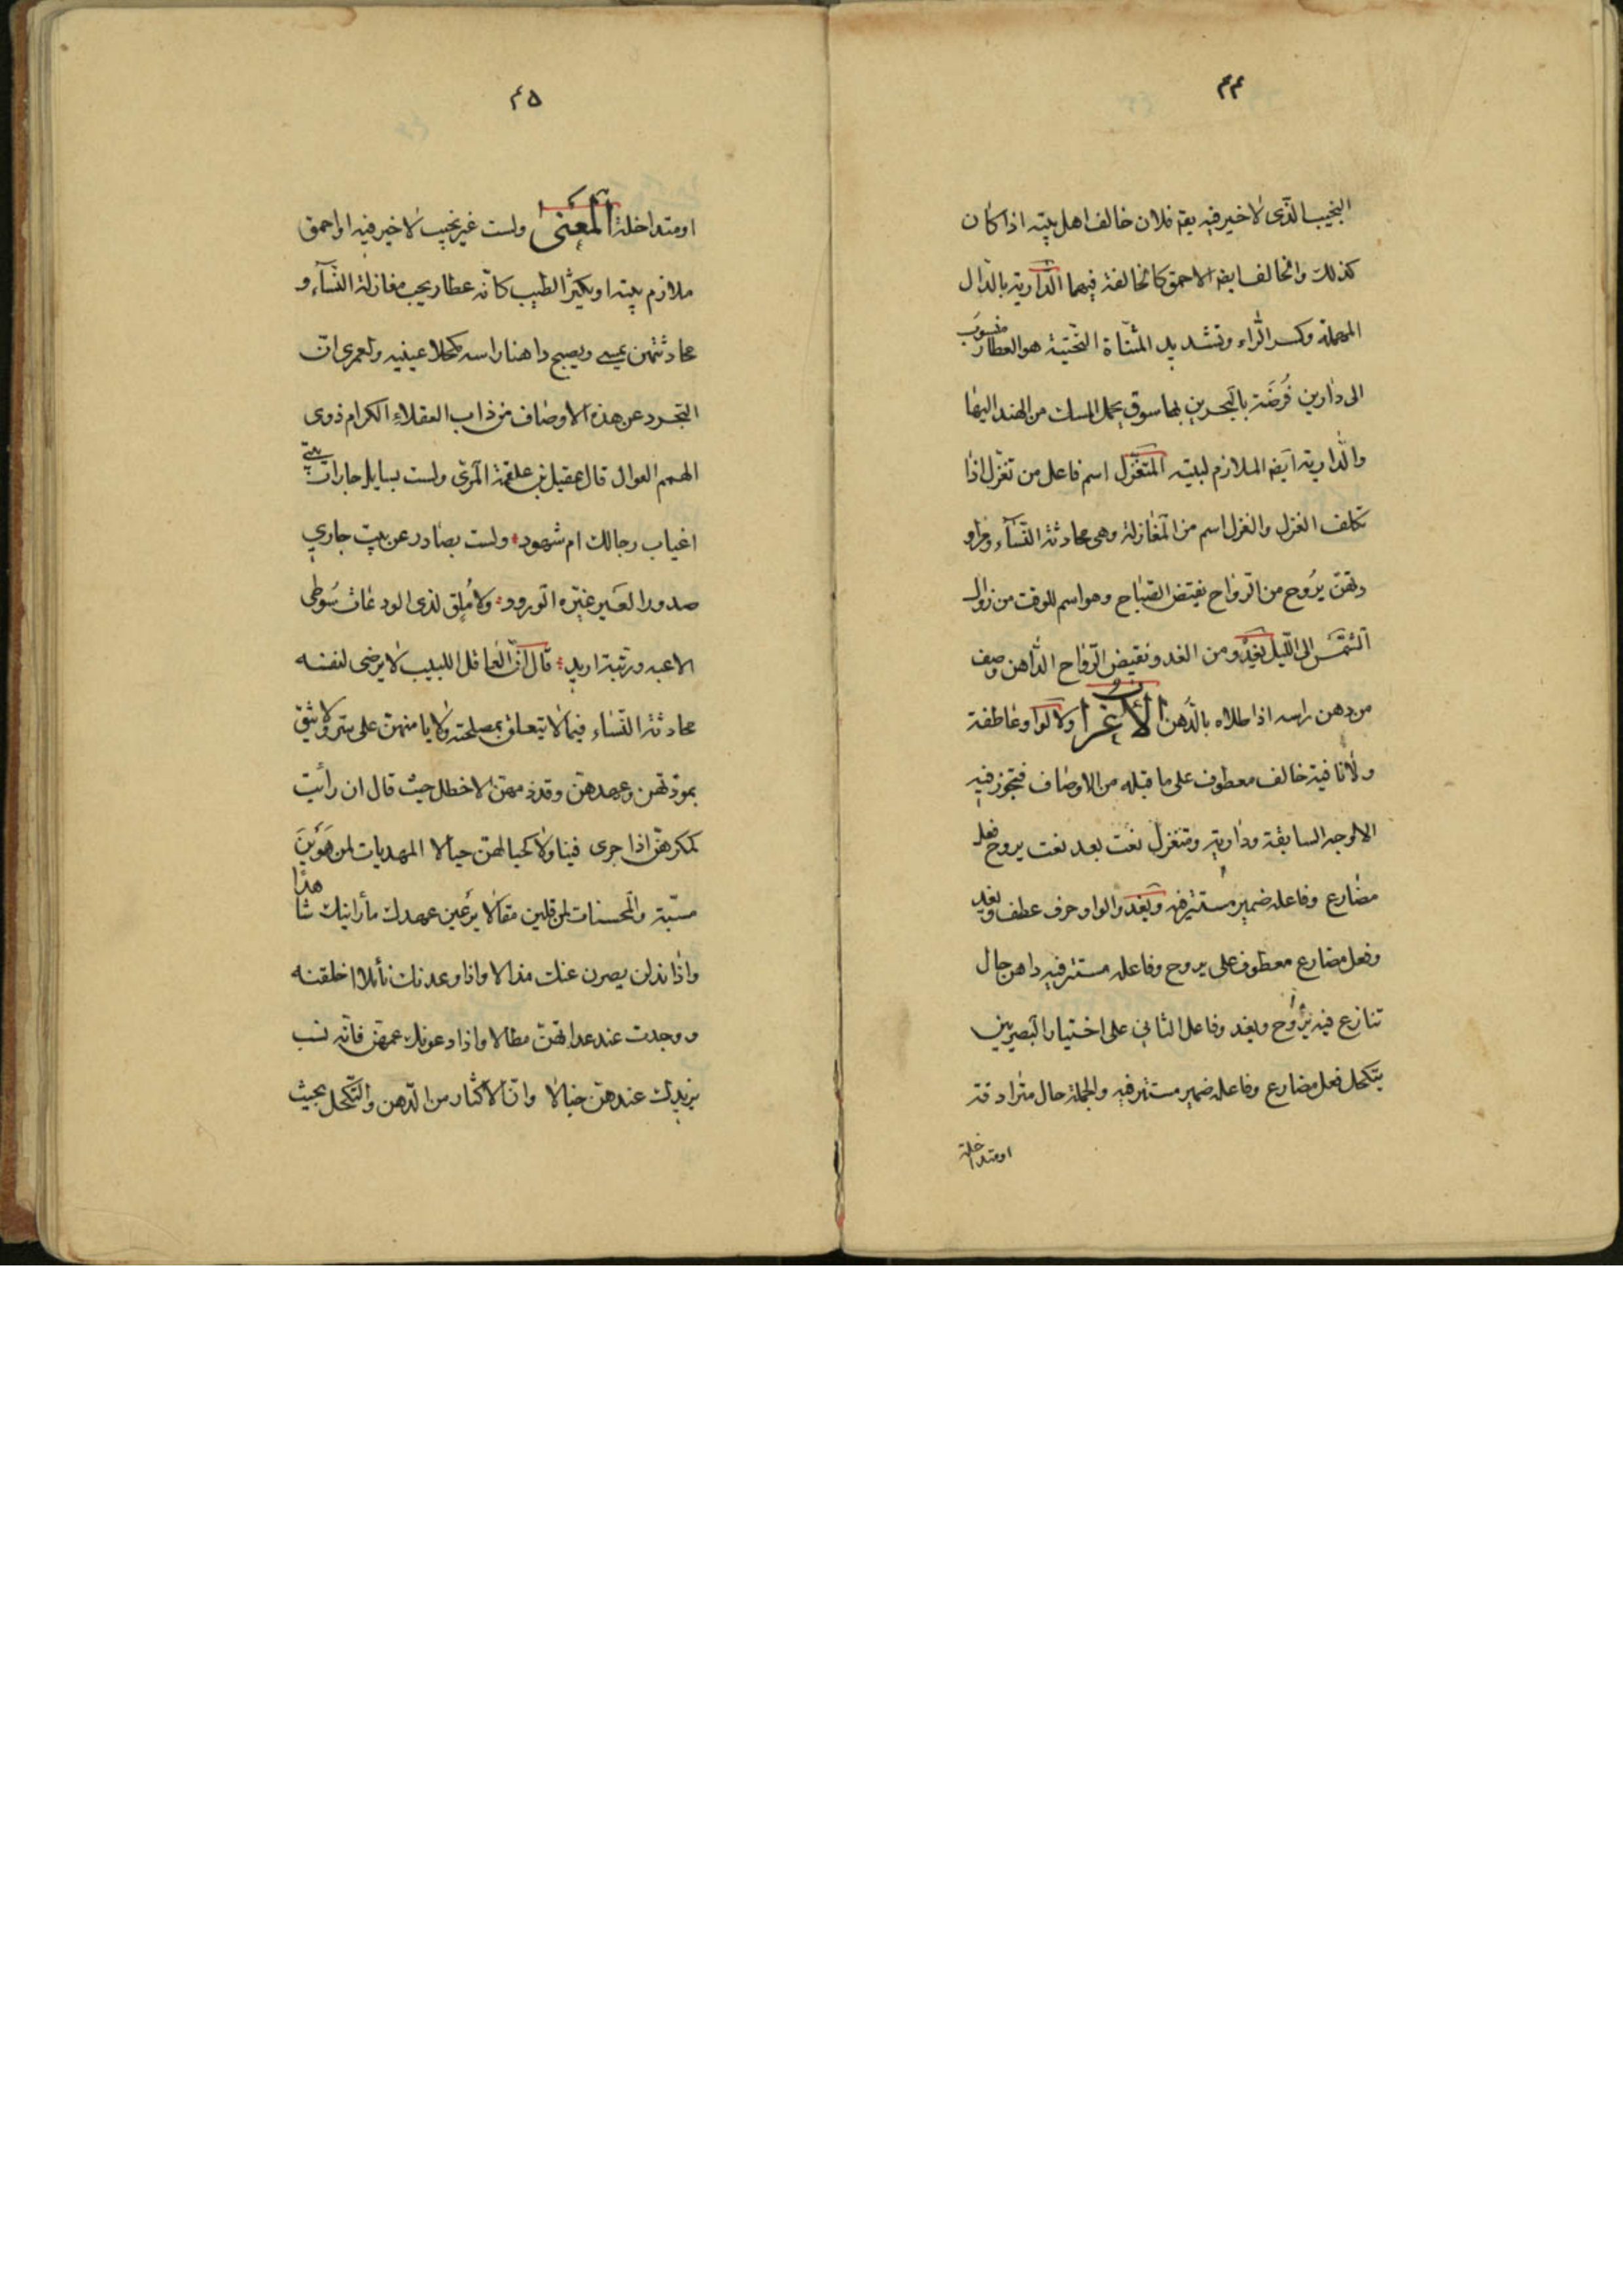 ٤٤
النجيب الّذى لاخير فيه يقم فلان خالف اهل بيته اذا كان
كذلك والخالف ايضا الاحمق كالخالفة فيهما الدّارية بالدّال
المهملة وكسر الرّاء وتشديد المثنّاة التّحتيّة هو العطار منسوب
الى دارين فُرضَة بالبحرين بها سوق يحمل المسك من الهند اليها
والدّارية ايضا الملازم لبيته المتغزّل اسم فاعل من تغزّل اذا
تكلف الغزل والغزل اسم من المغازلة وهى محادثة النّسآء ومراو
دتهنّ يرُوح من الرّواح نقيض الصّباح وهو اسم للوقت من زوال
الشّمس الى اللّيل يغدو من الغد ونقيض الرّواح الدّاهن وصف
من دهن راسه اذا طلاه بالدّهن الأعراب ولا الواو عاطفة
ولا نافية خالف معطوف على ما قبله من الاوصاف فتجوز فيه
الاوجه السابقة ودارية ومتغزل نعت بعد نعت يروح فعل
مضارع وفاعله ضمير مستتر فيه ويغدو الواو حرف عطف ويغد
وفعل مضارع معطوف على يروح وفاعله مستتر فيه داهن حال
تنازع فيه يروح ويغد وفاعل الثانى على اختيار البصريين
يتكحل فعل مضارع وفاعله ضمير مستتر فيه والجملة حال مترادفة
اومتداخلة
٤٥
اومتداخلة المعنى ولست غير نجيب لاخير فيه او احمق
ملازم بيته او يكثر الطيب كانّه عطار يحب مغازلة النّسآء و
محادثتهن يمسى ويصبح داهنا راسه مكحلا عينيه ولعمرى انّ
التجرد عن هذه الاوصاف من داب العقلاء الكرام ذوى
الهمم العوال قال عقيل بن علقمة المرّى ولست بسايل جارات بيتى
اغياب رجالك ام شهود ولست بصادر عن بيت جارى
صدور العير غمّره الورود ولا مُلق لذى الودعات سَوطى
الاعبه وريبته اريد قال انّ العاقل اللبيب لا يرضى لنفسه
محادثة النّساء فيما لا يتعلق بمصلحته ولا يامنهنّ على سر ولا يثق
بمودّتهن وعهدهنّ وقد ذمهنّ الاخطل حيث قال ان رأيت
كمكرهنّ اذا جرى فينا ولا كحبالهنّ حبالا المهديات لمن هَوَينَ
مسبّة والمحسنات لمن قلين مقالا يرعين عهدك ما راينك شاهدًا
واذا مذلن يصرن عنك مذالا واذا وعدنك نائلا اخلفنه
ووجدت عند عداتهنّ مطالا واذا دعونك عمهنّ فانّه نسب
يزيدك عندهنّ خبالا وانّ الاكثار من الدّهن والتّكحل بحيث